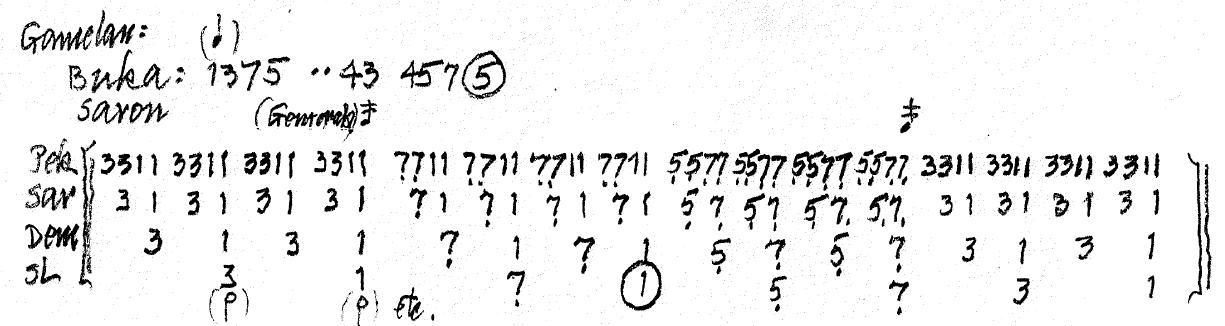 Gamelan: (♩)
Buka: 1375 ··43 457⑤
Saron (Genterek)
Pek 3311 3311 3311 3311 7̣7̣11 7̣7̣11 7̣7̣11 7̣7̣11 5̣5̣7̣7̣ 5̣5̣7̣7̣ 5̣5̣7̣7̣ 5̣5̣7̣7̣ 3311 3311 3311 3311
Sar 3 1 3 1 3 1 3 1 7̣ 1 7̣ 1 7̣ 1 7̣ 1 5̣ 7̣ 5̣ 7̣ 5̣ 7̣ 5̣ 7̣ 3 1 3 1 3 1 3 1
Dem 3 1 3 1 7̣ 1 7̣ 1 5̣ 7̣ 5̣ 7̣ 3 1 3 1
SL 3 1 7̣ ① 5̣ 7̣ 3 1
(P) (P) etc.